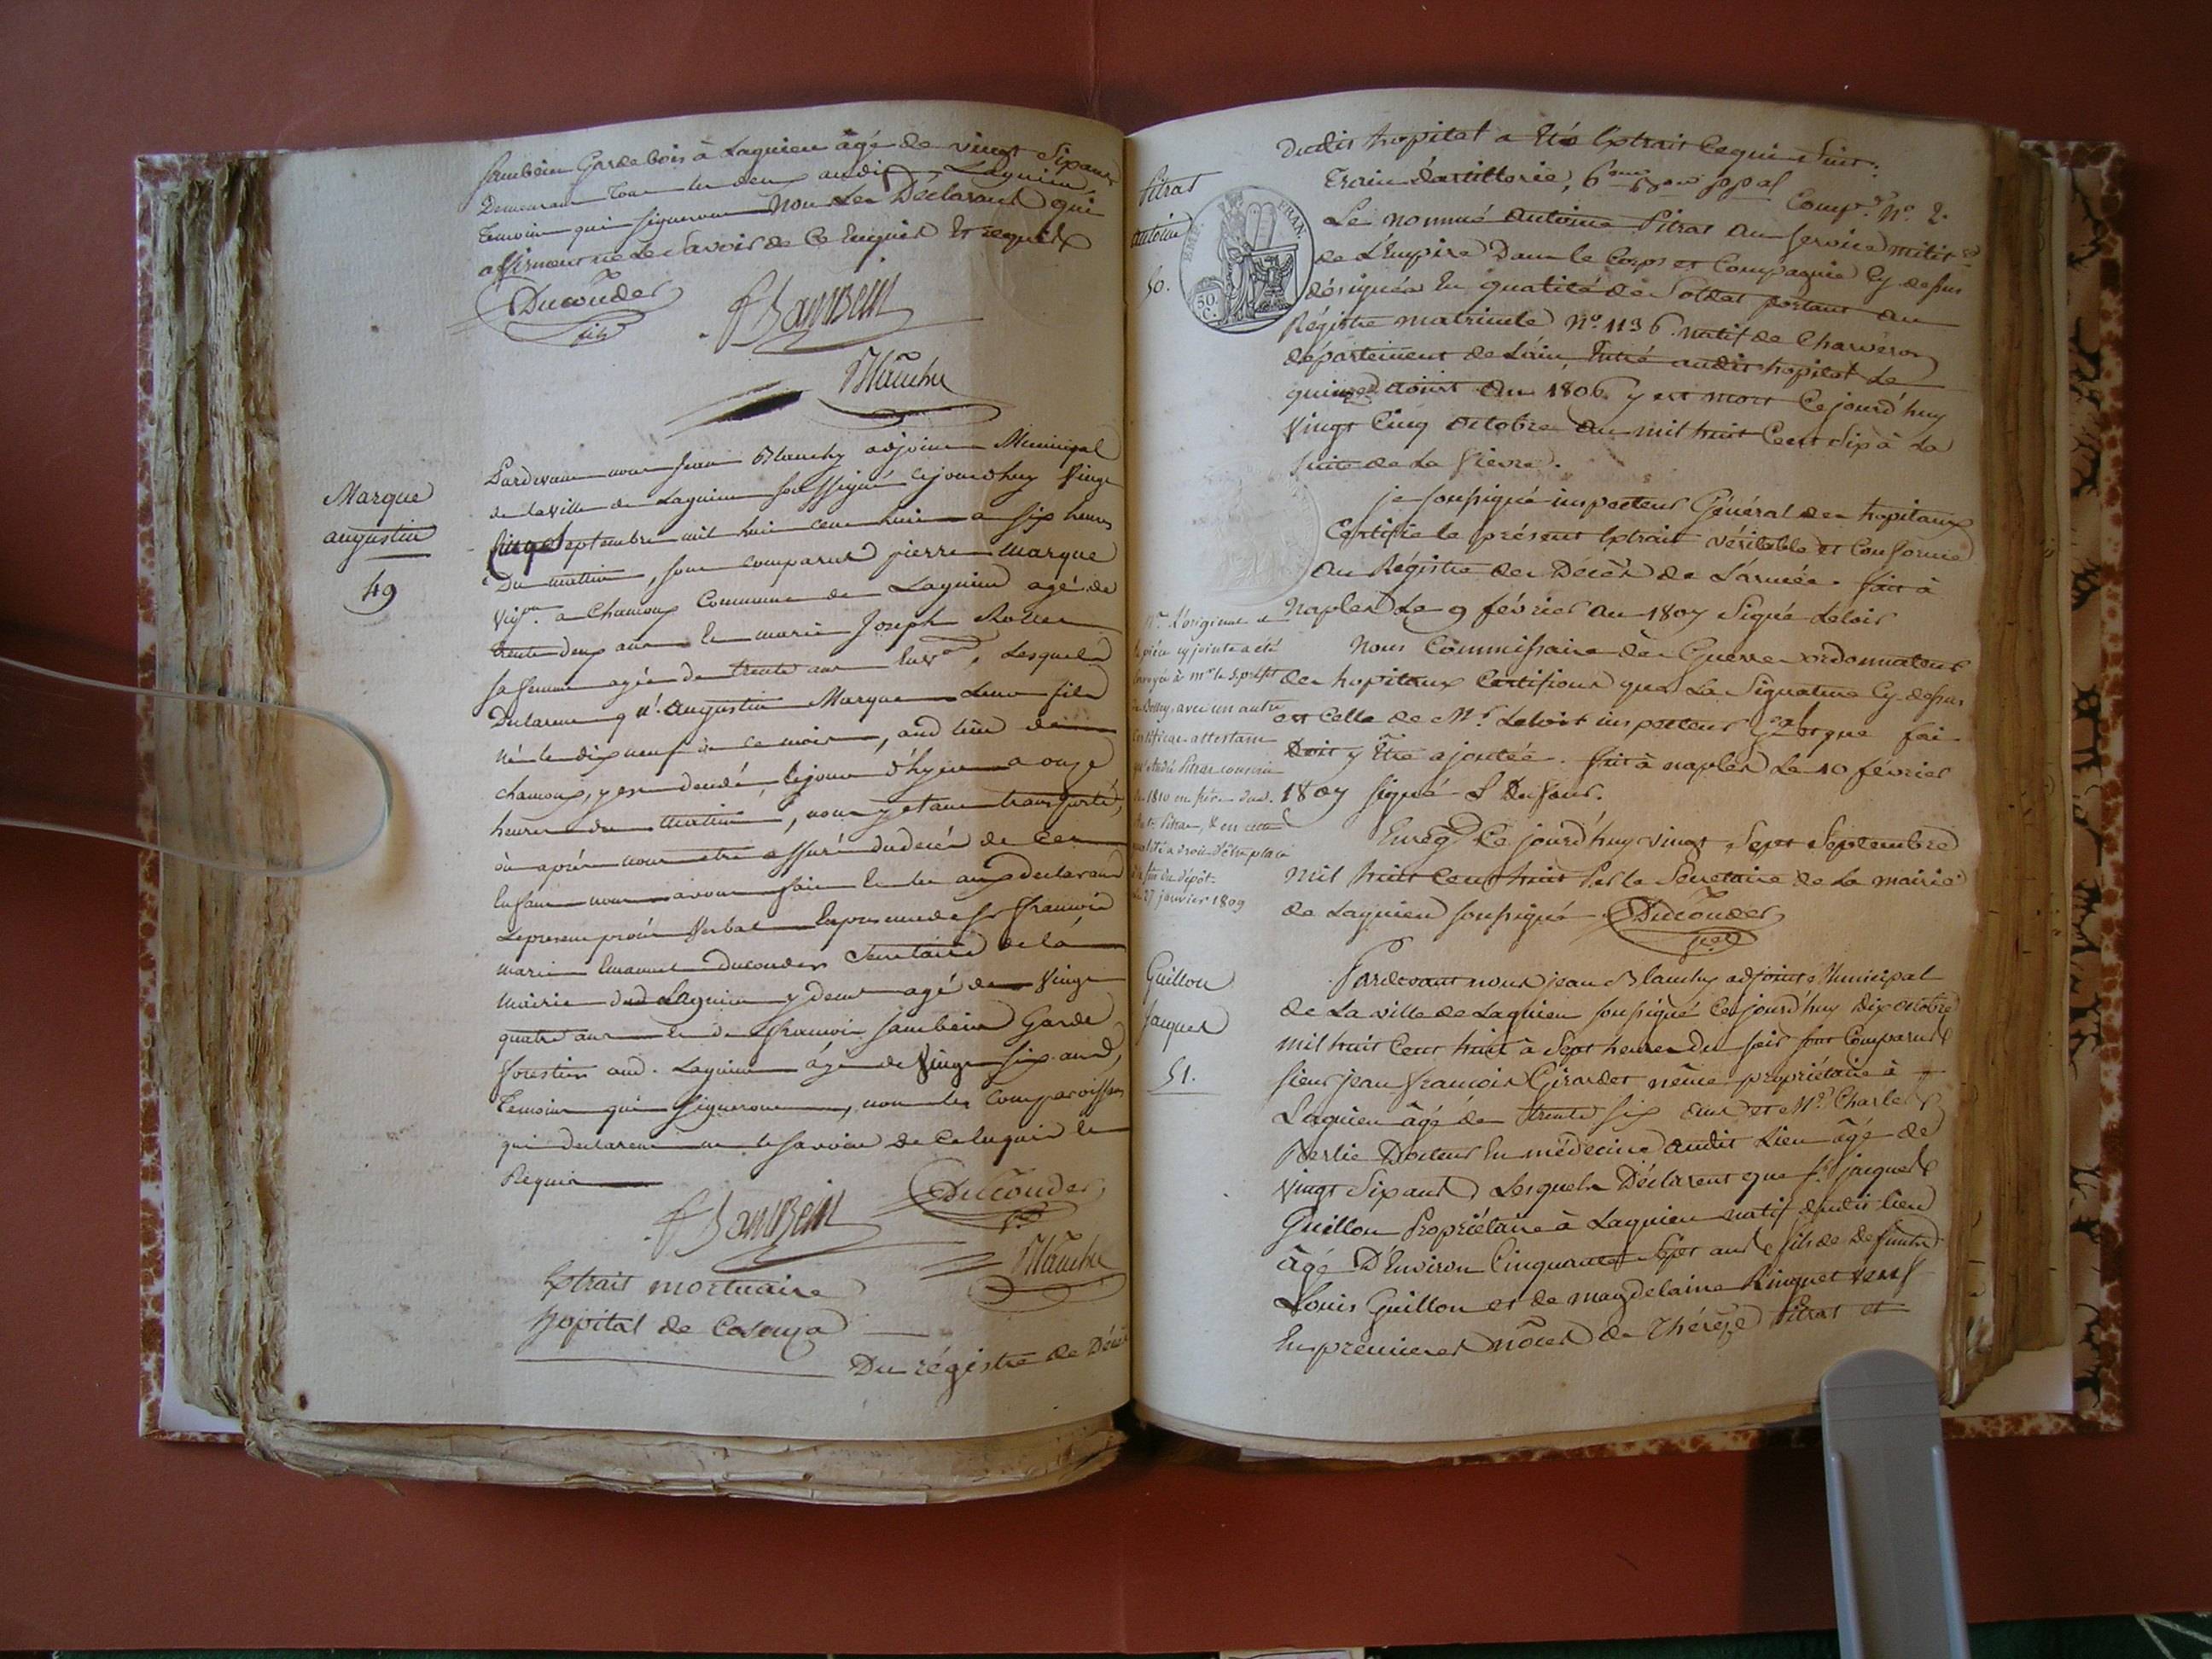 Jambein Garde bois à Lagnieu âgé de vingt Six ans
Demeurant tous les deux audit Lagnieu
temoins qui signeront non Les Déclarants qui
affirment ne Le Savoir de Ce Enquis Et requis
Ducouder
fils
F Jambein
Blanchy
Marque
augustin
49
Pardevant nous Jean Blanchy adjoint Municipal
de la ville de Lagnieu soussigné cejourdhuy Vingt
Septembre mil huit cent huit a six heures
Du mattin, sont comparus pierre Marque
Vig.on a Chamoux Commune de Lagnieu agé de
trente deux ans et marie Joseph
sa femme agée de trente ans env.on, Lesquels
Declarent q.u' augustin Marque Leur fils
né le dix neuf de ce mois, aud lieu de
chamoux, y est decedé, le jour d'hyer a onze
heures du mattin, nous y etant transporté,
où aprés nous etre assuré du decés de cet
Enfant nous avons fait Et lu aux declarants
Le present procés Verbal En presence de Sr. francois
marie Emanuel Ducouder Secretaire de la
Mairie dud Lagnieu y demt agé de Vingt
quatre ans et de francois Jambein Garde
forestier aud. Lagnieu âgé de Vingt six ans,
Temoins qui signeront, non les Comparoissans
qui declarent ne le savoir de Ce Enquis et
Requis
F Jambein
Ducouder
Blanchy
Extrait mortuaire
hopital de
Du régistre de Décès
Pitrat
Antoine
50.
EMP. FRAN.
50. C.
Dudit hopital a Eté Extrait Ce qui Suit.
Train d'artillerie, 6eme Comp.e N.o 2.
Le nommé Antoine Pitrat au service milit.re
de L'Empire Dans le Corps et Compagnie Cy dessus
désignés En qualité de Soldat portant au
Régistre matricule N.o 1136. natif de Charveron
département de L'ain, Entré audit hopital Le
quinze aoust an 1806. y est mort Cejourd'huy
Vingt Cinq octobre an mil huit Cent Six à La
suite de La fievre.
je soussigné inspecteur Général des hopitaux
Certifie le présent Extrait véritable et Conforme
au Régistre des Décès de L'armée. fait à
Naples Le 9 février an 1807 Signé Leloir
Nous Commissaire des Guerres ordonnateur
des hopitaux Certifions que La Signature Cy dessus
est Celle de M.r Leloir inspecteur Et que foi
Doit y Etre ajoutée. fait à naples Le 10 février
1807 signé S Dufour.
Enreg.é Ce jourd'huy vingt Sept Septembre
mil huit Cent huit Par le Secretaire de La mairie
de Lagnieu soussigné Ducouder
N.a L'original de
la pièce cy jointe a été
envoyée à M.r le S. préfet
de Belley, avec un autre
certificat attestant
qu'André Pitrat conscrit
de 1810 est frère dud.
Ant. Pitrat, & en cette
qualité a droit d'être placé
à la fin du dépôt.
Le 27 janvier 1809
Guillon
Jacques
51.
Pardevant nous jean Blanchy adjoint Municipal
de La ville de Lagnieu soussigné Cejourd'huy Dix octobre
mil huit Cent huit à Sept heures Du soir sont Comparus
sieur jean francois Girardet même propriétaire à
Lagnieu âgé de trente six ans et M.r Charles
Docteur En médecine audit Lieu âgé de
vingt Six ans Lesquels Déclarent que S.r jacques
Guillon Propriétaire à Lagnieu natif dudit lieu
âgé D'Environ Cinquante Sept ans fils de Defunts
Louis Guillon et de magdelaine Ringuet Veuf
En premieres nôces de Thérèze Pitrat et